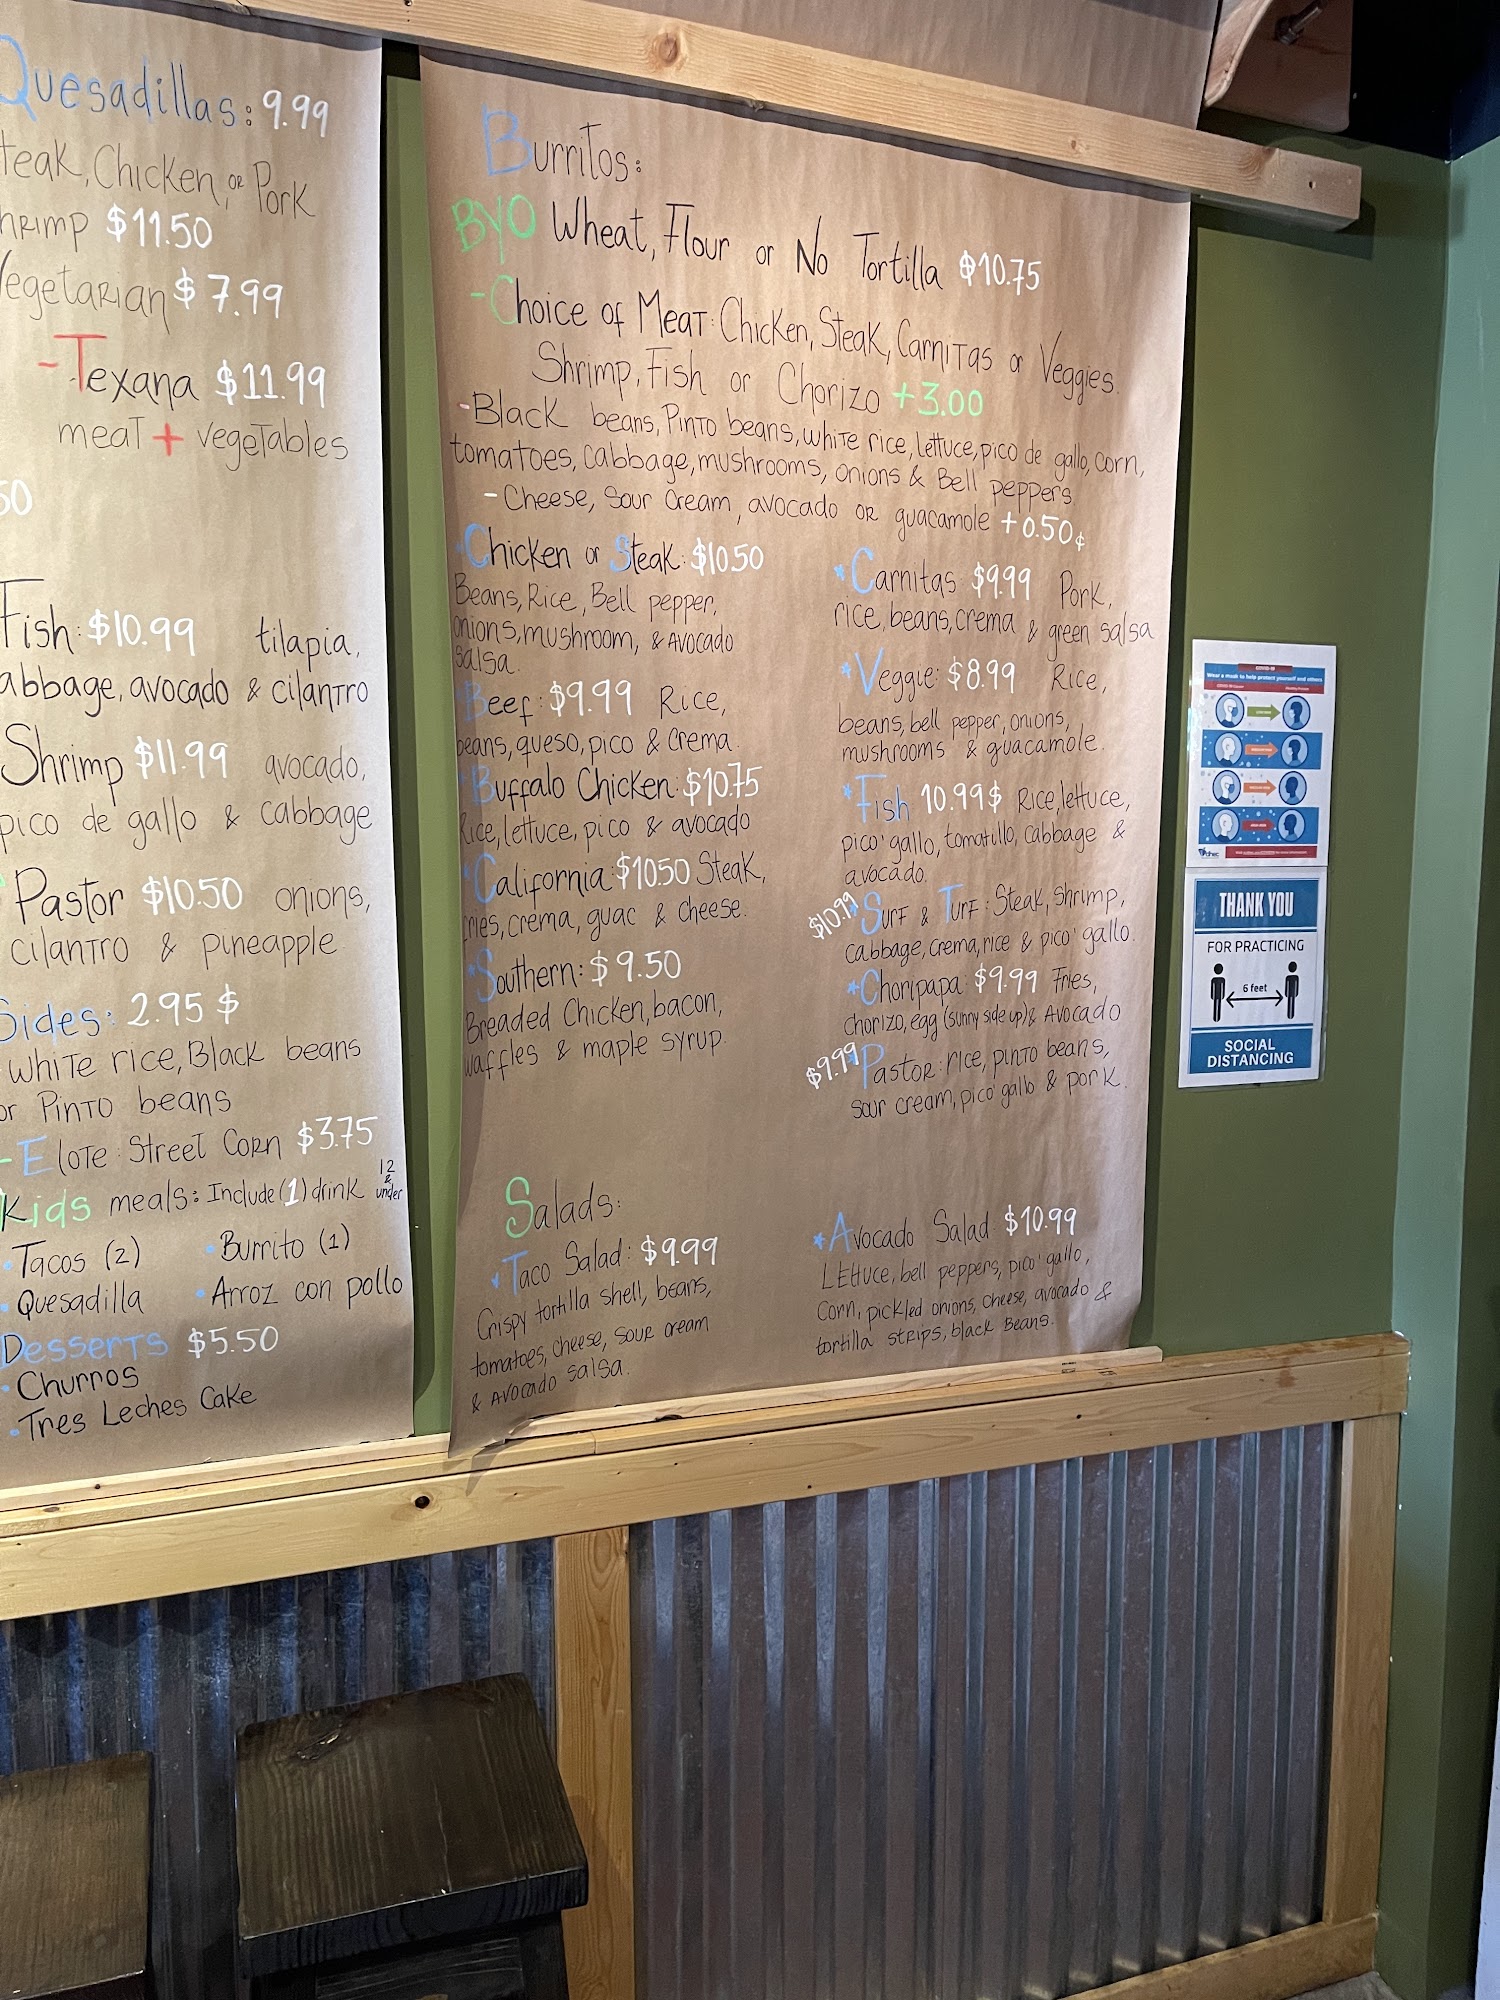 Quesadillas: 9.99
Chicken, or Pork
$11.50
Vegetarian $7.99
-Texana $11.99
meat + vegetables
50
Fish: $10.99 tilapia,
cabbage, avocado & cilantro
Shrimp $11.99 avocado,
pico de gallo & cabbage
Pastor $10.50 onions,
cilantro & pineapple
Sides: 2.95 $
White rice, Black beans
or Pinto beans
-Elote: Street Corn $3.75
Kids meals: Include (1) drink 12 & under
• Tacos (2) • Burrito (1)
• Quesadilla • Arroz con pollo
Desserts $5.50
• Churros
• Tres Leches Cake
Burritos:
BYO Wheat, Flour or No Tortilla $10.75
-Choice of Meat: Chicken, Steak, Carnitas or Veggies.
Shrimp, Fish or Chorizo +3.00
-Black beans, Pinto beans, white rice, lettuce, pico de gallo, corn,
tomatoes, cabbage, mushrooms, onions & Bell peppers.
- Cheese, Sour Cream, avocado or guacamole +0.50¢
Chicken or Steak: $10.50
Beans, Rice, Bell pepper,
onions, mushroom, & Avocado
Salsa.
Beef: $9.99 Rice,
beans, queso, pico & crema.
Buffalo Chicken: $10.75
Rice, lettuce, pico & avocado
*California: $10.50 Steak,
fries, crema, guac & cheese.
*Southern: $9.50
Breaded Chicken, bacon,
waffles & maple syrup.
*Carnitas $9.99 Pork,
rice, beans, crema & green salsa
*Veggie: $8.99 Rice,
beans, bell pepper, onions,
mushrooms & guacamole.
*Fish 10.99$ Rice, lettuce,
pico' gallo, tomatillo, cabbage &
avocado.
$10.99 *Surf & Turf: Steak, shrimp,
cabbage, crema, rice & pico' gallo.
*Choripapa: $9.99 Fries,
chorizo, egg (sunny side up) & Avocado
$9.99 *Pastor: rice, pinto beans,
sour cream, pico' gallo & pork.
Salads:
*Taco Salad: $9.99
Crispy tortilla shell, beans,
tomatoes, cheese, sour cream
& Avocado salsa.
*Avocado Salad: $10.99
Lettuce, bell peppers, pico' gallo,
Corn, pickled onions, cheese, avocado &
tortilla strips, black Beans.
COVID-19
Wear a mask to help protect yourself and others
dhec
THANK YOU
FOR PRACTICING
6 feet
SOCIAL
DISTANCING